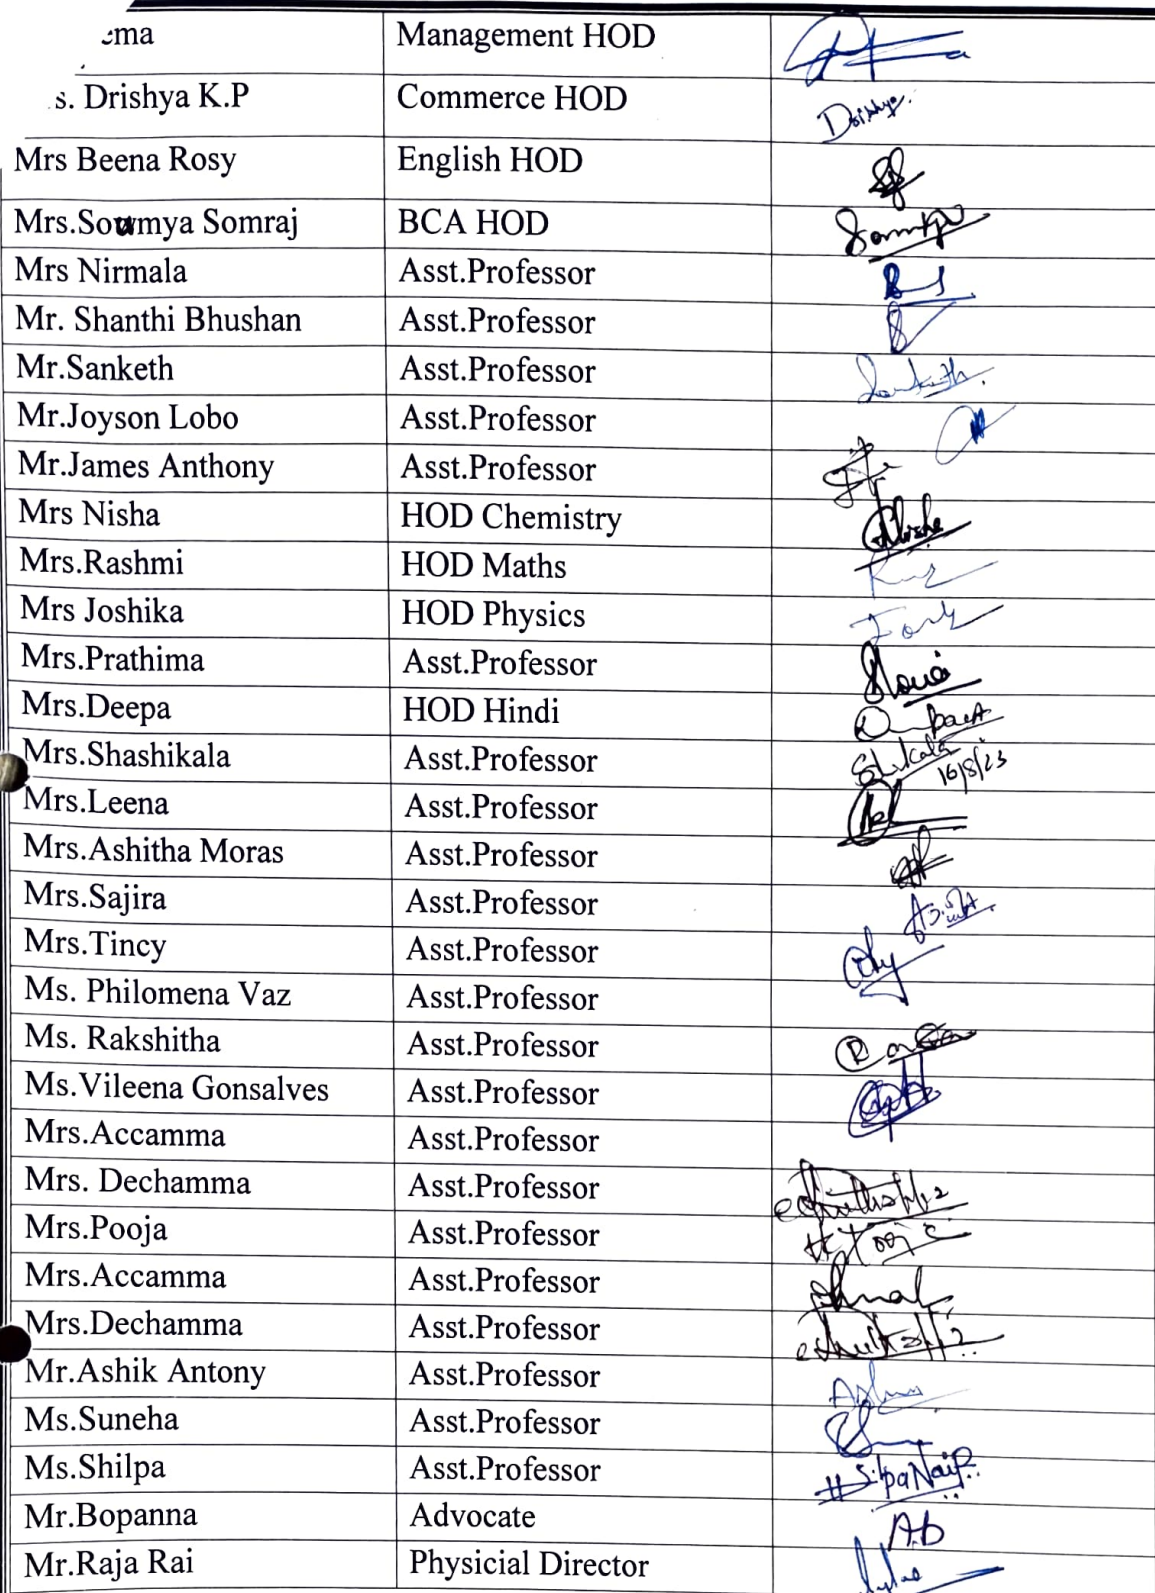 ema Management HOD
s. Drishya K.P Commerce HOD Drishya.
Mrs Beena Rosy English HOD
Mrs.Soumya Somraj BCA HOD
Mrs Nirmala Asst.Professor
Mr. Shanthi Bhushan Asst.Professor
Mr.Sanketh Asst.Professor Sanketh.
Mr.Joyson Lobo Asst.Professor
Mr.James Anthony Asst.Professor
Mrs Nisha HOD Chemistry Nisha
Mrs.Rashmi HOD Maths
Mrs Joshika HOD Physics
Mrs.Prathima Asst.Professor
Mrs.Deepa HOD Hindi
Mrs.Shashikala Asst.Professor 16/8/23
Mrs.Leena Asst.Professor
Mrs.Ashitha Moras Asst.Professor
Mrs.Sajira Asst.Professor
Mrs.Tincy Asst.Professor
Ms. Philomena Vaz Asst.Professor
Ms. Rakshitha Asst.Professor
Ms.Vileena Gonsalves Asst.Professor
Mrs.Accamma Asst.Professor
Mrs. Dechamma Asst.Professor
Mrs.Pooja Asst.Professor
Mrs.Accamma Asst.Professor
Mrs.Dechamma Asst.Professor
Mr.Ashik Antony Asst.Professor
Ms.Suneha Asst.Professor
Ms.Shilpa Asst.Professor
Mr.Bopanna Advocate A.B
Mr.Raja Rai Physicial Director